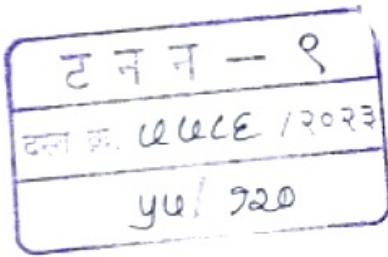 ट न न - ९
दस्त क्र. ७७८६ / २०२३
५७ / १२०